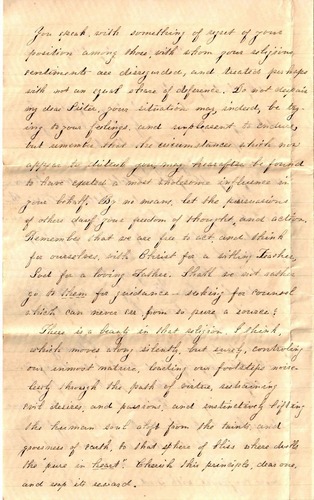 You speak with something of regret of your
position among those, with whom your religious
sentiments are disregarded, and treated perhaps
with not an equal share of deference. Do not despair
my dear Sister, your situation may, indeed, be try-
ing to your feelings, and unpleasant to endure,
but remember this. The circumstances which now
appear to disturb you, may hereafter be found
to have exerted a most wholesome influence in
your behalf. By no means, let the persuasions
of others your freedom of thought, and action.
Remember that we are free to act, and think
for ourselves, with Christ for a Teacher,
God for a loving Father. Shall we not rather
go to them for guidance — seeking for counsel
which can never err, from so pure a source?
There is a beauty in that religion, I think,
which moves along silently, but surely, controling
our inmost nature, leading our footsteps noise-
lessly through the path of virtue, restraining
evil desires, and passions, and instinctively lifting
the human soul aloft from the taints, and
grossness of earth, to that sphere of bliss where dwells
the pure in heart. Cherish this principle, dear one,
and reap its reward.